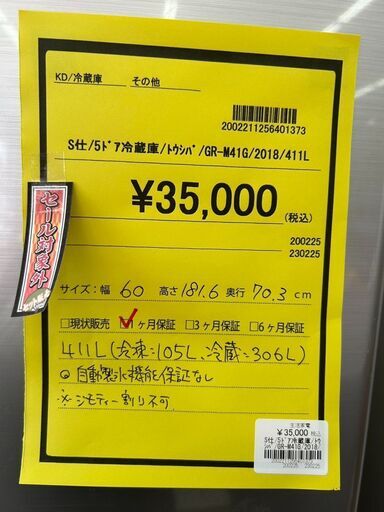 KD/冷蔵庫 その他
2002211256401373
S仕/5ﾄﾞｱ冷蔵庫/ﾄｳｼﾊﾞ/GR-M41G/2018/411L
¥35,000(税込)
200225
230225
セール対象外
サイズ:幅 60 高さ 181.6 奥行 70.3 cm
□現状販売 ☑1ヶ月保証 □3ヶ月保証 □6ヶ月保証
411L(冷凍:105L、冷蔵:306L)
◎自動製氷機能保証なし
※ジモティー割り不可
生活家電
¥35,000 税込
S仕/5ﾄﾞｱ冷蔵庫/ﾄｳ
ｼﾊﾞ/GR-M41G/2018/
200225 230225